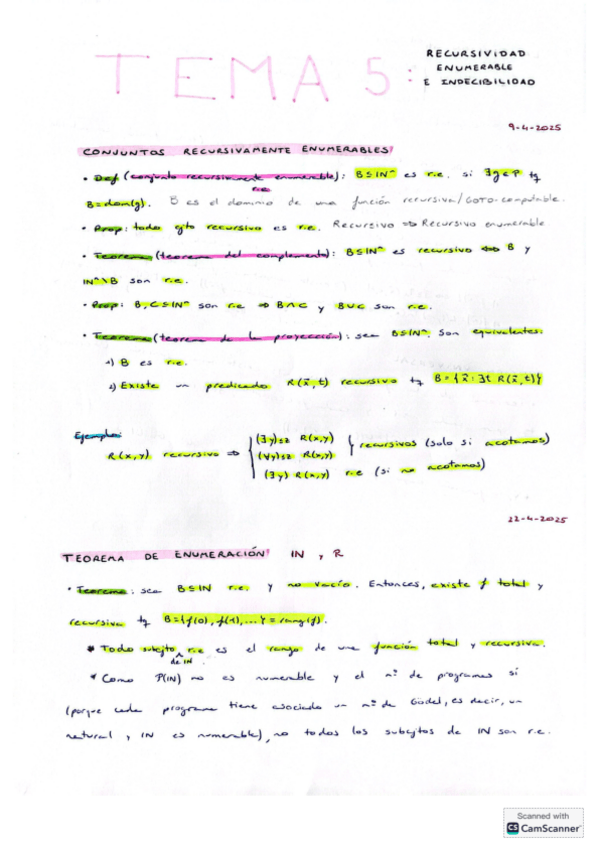 TEMA 5:
RECURSIVIDAD
ENUMERABLE
E INDECIBILIDAD
9-4-2025
CONJUNTOS RECURSIVAMENTE ENUMERABLES
• Def (conjunto recursivamente enumerable): B⊆ℕⁿ es r.e. si ∃g∈P tq
r.e
B=dom(g). B es el dominio de una función recursiva/GOTO-computable.
• Prop: todo cjto recursivo es r.e. Recursivo ⇒ Recursivo enumerable.
• Teorema (teorema del complemento): B⊆ℕⁿ es recursivo ⇔ B y
ℕⁿ\B son r.e.
• Prop: B,C⊆ℕⁿ son r.e ⇒ B∩C y B∪C son r.e.
• Teorema (teorema de la proyección): sea B⊆ℕⁿ. Son equivalentes:
1) B es r.e.
2) Existe un predicado R(x⃗,t) recursivo tq B={x⃗:∃t R(x⃗,t)}
Ejemplo:
R(x,y) recursivo ⇒ { (∃y)≤z R(x,y)
(∀y)≤z R(x,y) } recursivos (solo si acotamos)
(∃y) R(x,y) r.e (si no acotamos)
22-4-2025
TEOREMA DE ENUMERACIÓN ℕ y R
• Teorema: sea B⊆ℕ r.e. y no vacío. Entonces, existe f total y
recursiva tq B={f(0), f(1),...} = rang(f).
* Todo subcjto r.e es el rango de una función total y recursiva.
de ℕ
* Como P(ℕ) no es numerable y el nº de programas sí
(porque cada programa tiene asociado un nº de Gödel, es decir, un
natural y ℕ es numerable), no todos los subcjtos de ℕ son r.e.
Scanned with
CS CamScanner